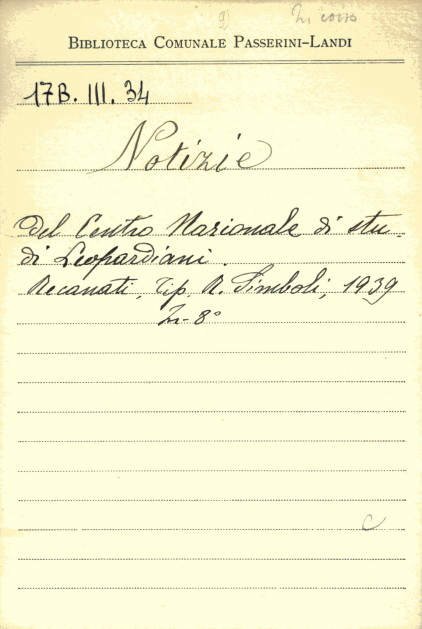 9)
In corso
BIBLIOTECA COMUNALE PASSERINI-LANDI
17B. III. 34
Notizie
del Centro Nazionale di stu-
di Leopardiani.
Recanati, Tip. R. Simboli, 1939
In-8°
C